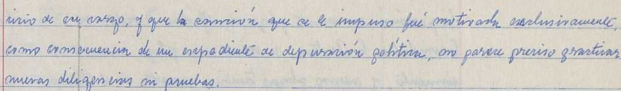 icio de su cargo, y que la sanción que se le impuso fué motivada exclusivamente,
como consecuencia de un expediente de depuración política, no parece preciso practicar
nuevas diligencias ni pruebas.